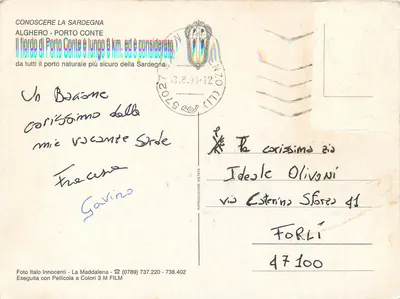 CONOSCERE LA SARDEGNA
ALGHERO - PORTO CONTE
Il fiordo di Porto Conte è lungo 6 km. ed è considerato
da tutti il porto naturale più sicuro della Sardegna
57027
(LI)
Un Bacione
carissimo dalle
mie vacanze Sarde
Francesca
Gavino
Alla carissima zia
Ideale Olivoni
via Caterina Sforza 41
FORLÍ
47100
Foto Italo Innocenti - La Maddalena - ☎ (0789) 737.220 - 738.402
Eseguita con Pellicola a Colori 3 M FILM